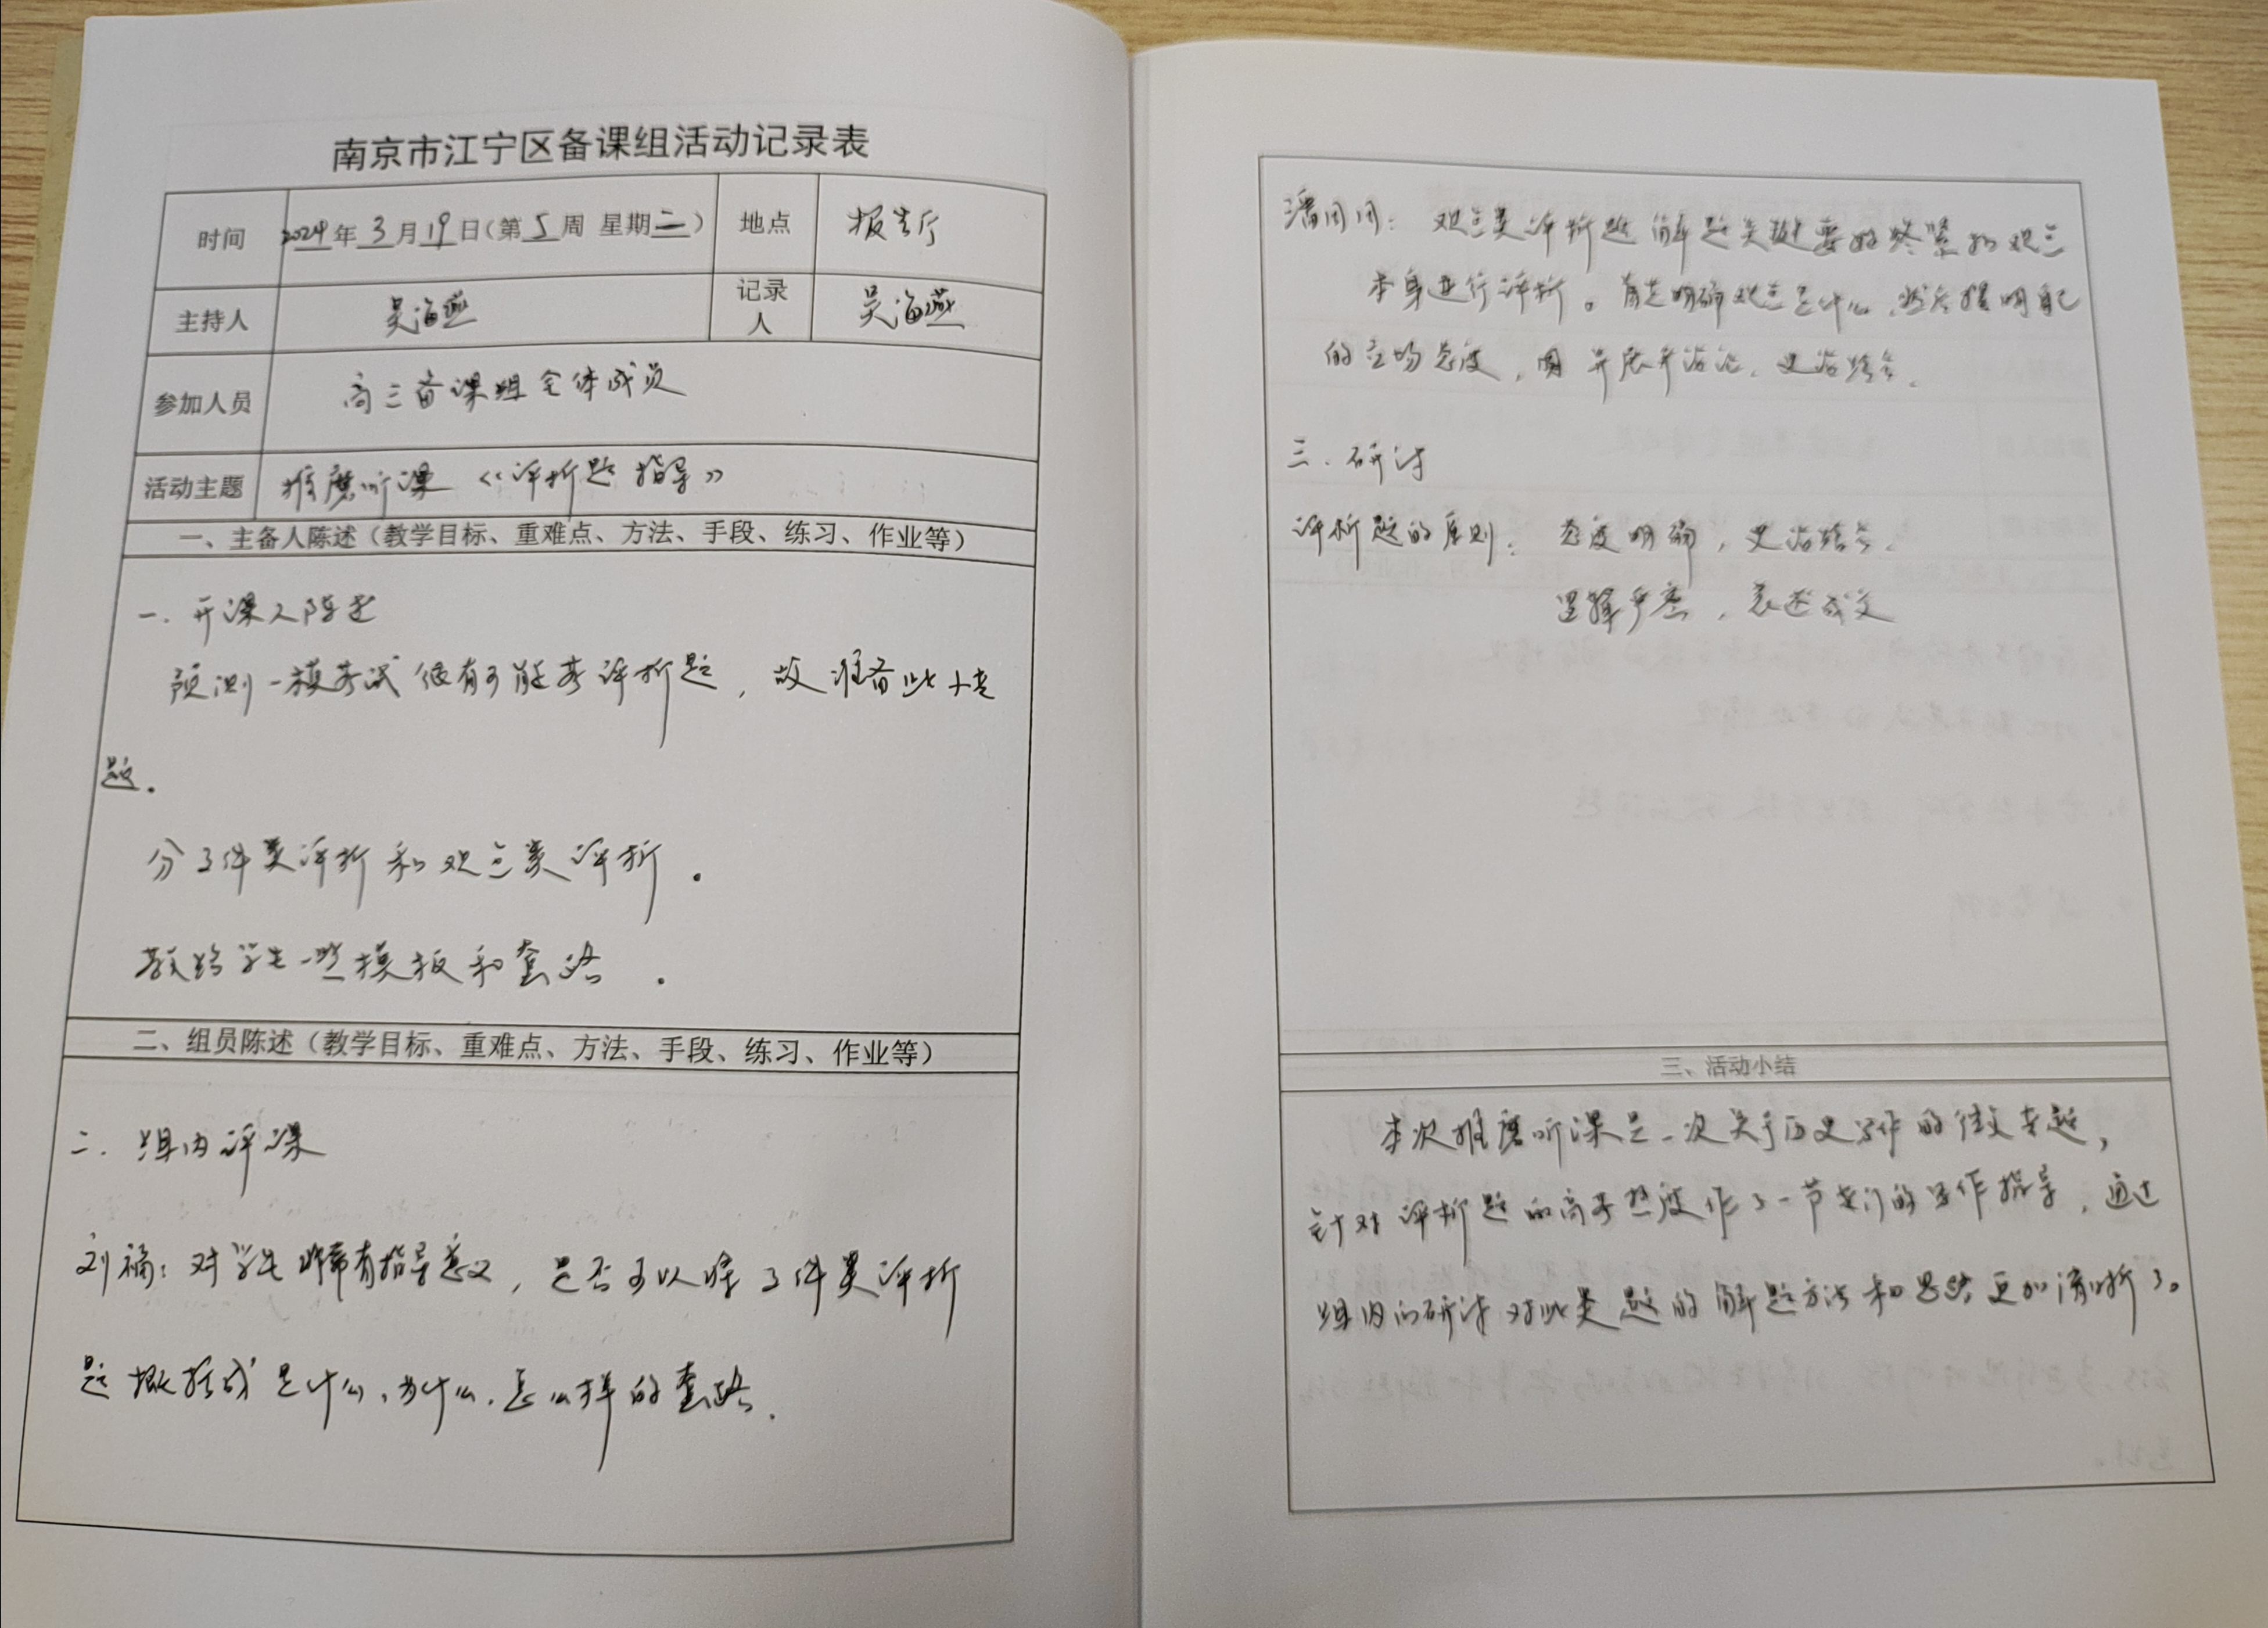 南京市江宁区备课组活动记录表
时间 2024年3月19日(第5周 星期二) 地点 报告厅
主持人 吴海燕 记录人 吴海燕
参加人员 高三备课组全体成员
活动主题 推磨听课《评析题指导》
一、主备人陈述（教学目标、重难点、方法、手段、练习、作业等）
一.开课人陈述
预测一模考试很有可能考评析题，故准备此小专
题.
分事件类评析和观点类评析.
教给学生一些模板和套路.
二、组员陈述（教学目标、重难点、方法、手段、练习、作业等）
二.组内评课
刘：对学生非常有指导意义，是否可以将事件类评析
题概括成是什么、为什么、怎么样的套路.
潘同同：观点类评析题解题关键要始终紧扣观点
本身进行评析。首先明确观点是什么，然后摆明自己
的立场态度，展开论证，史论结合.
三.研讨
评析题的原则：态度明确，史论结合.
逻辑严密，表述成文
三、活动小结
本次推磨听课是一次关于历史写作的微专题，
针对评析题的高考热度作了一节专门的写作指导，通过
组内的研讨对此类题的解题方法和思路更加清晰了。